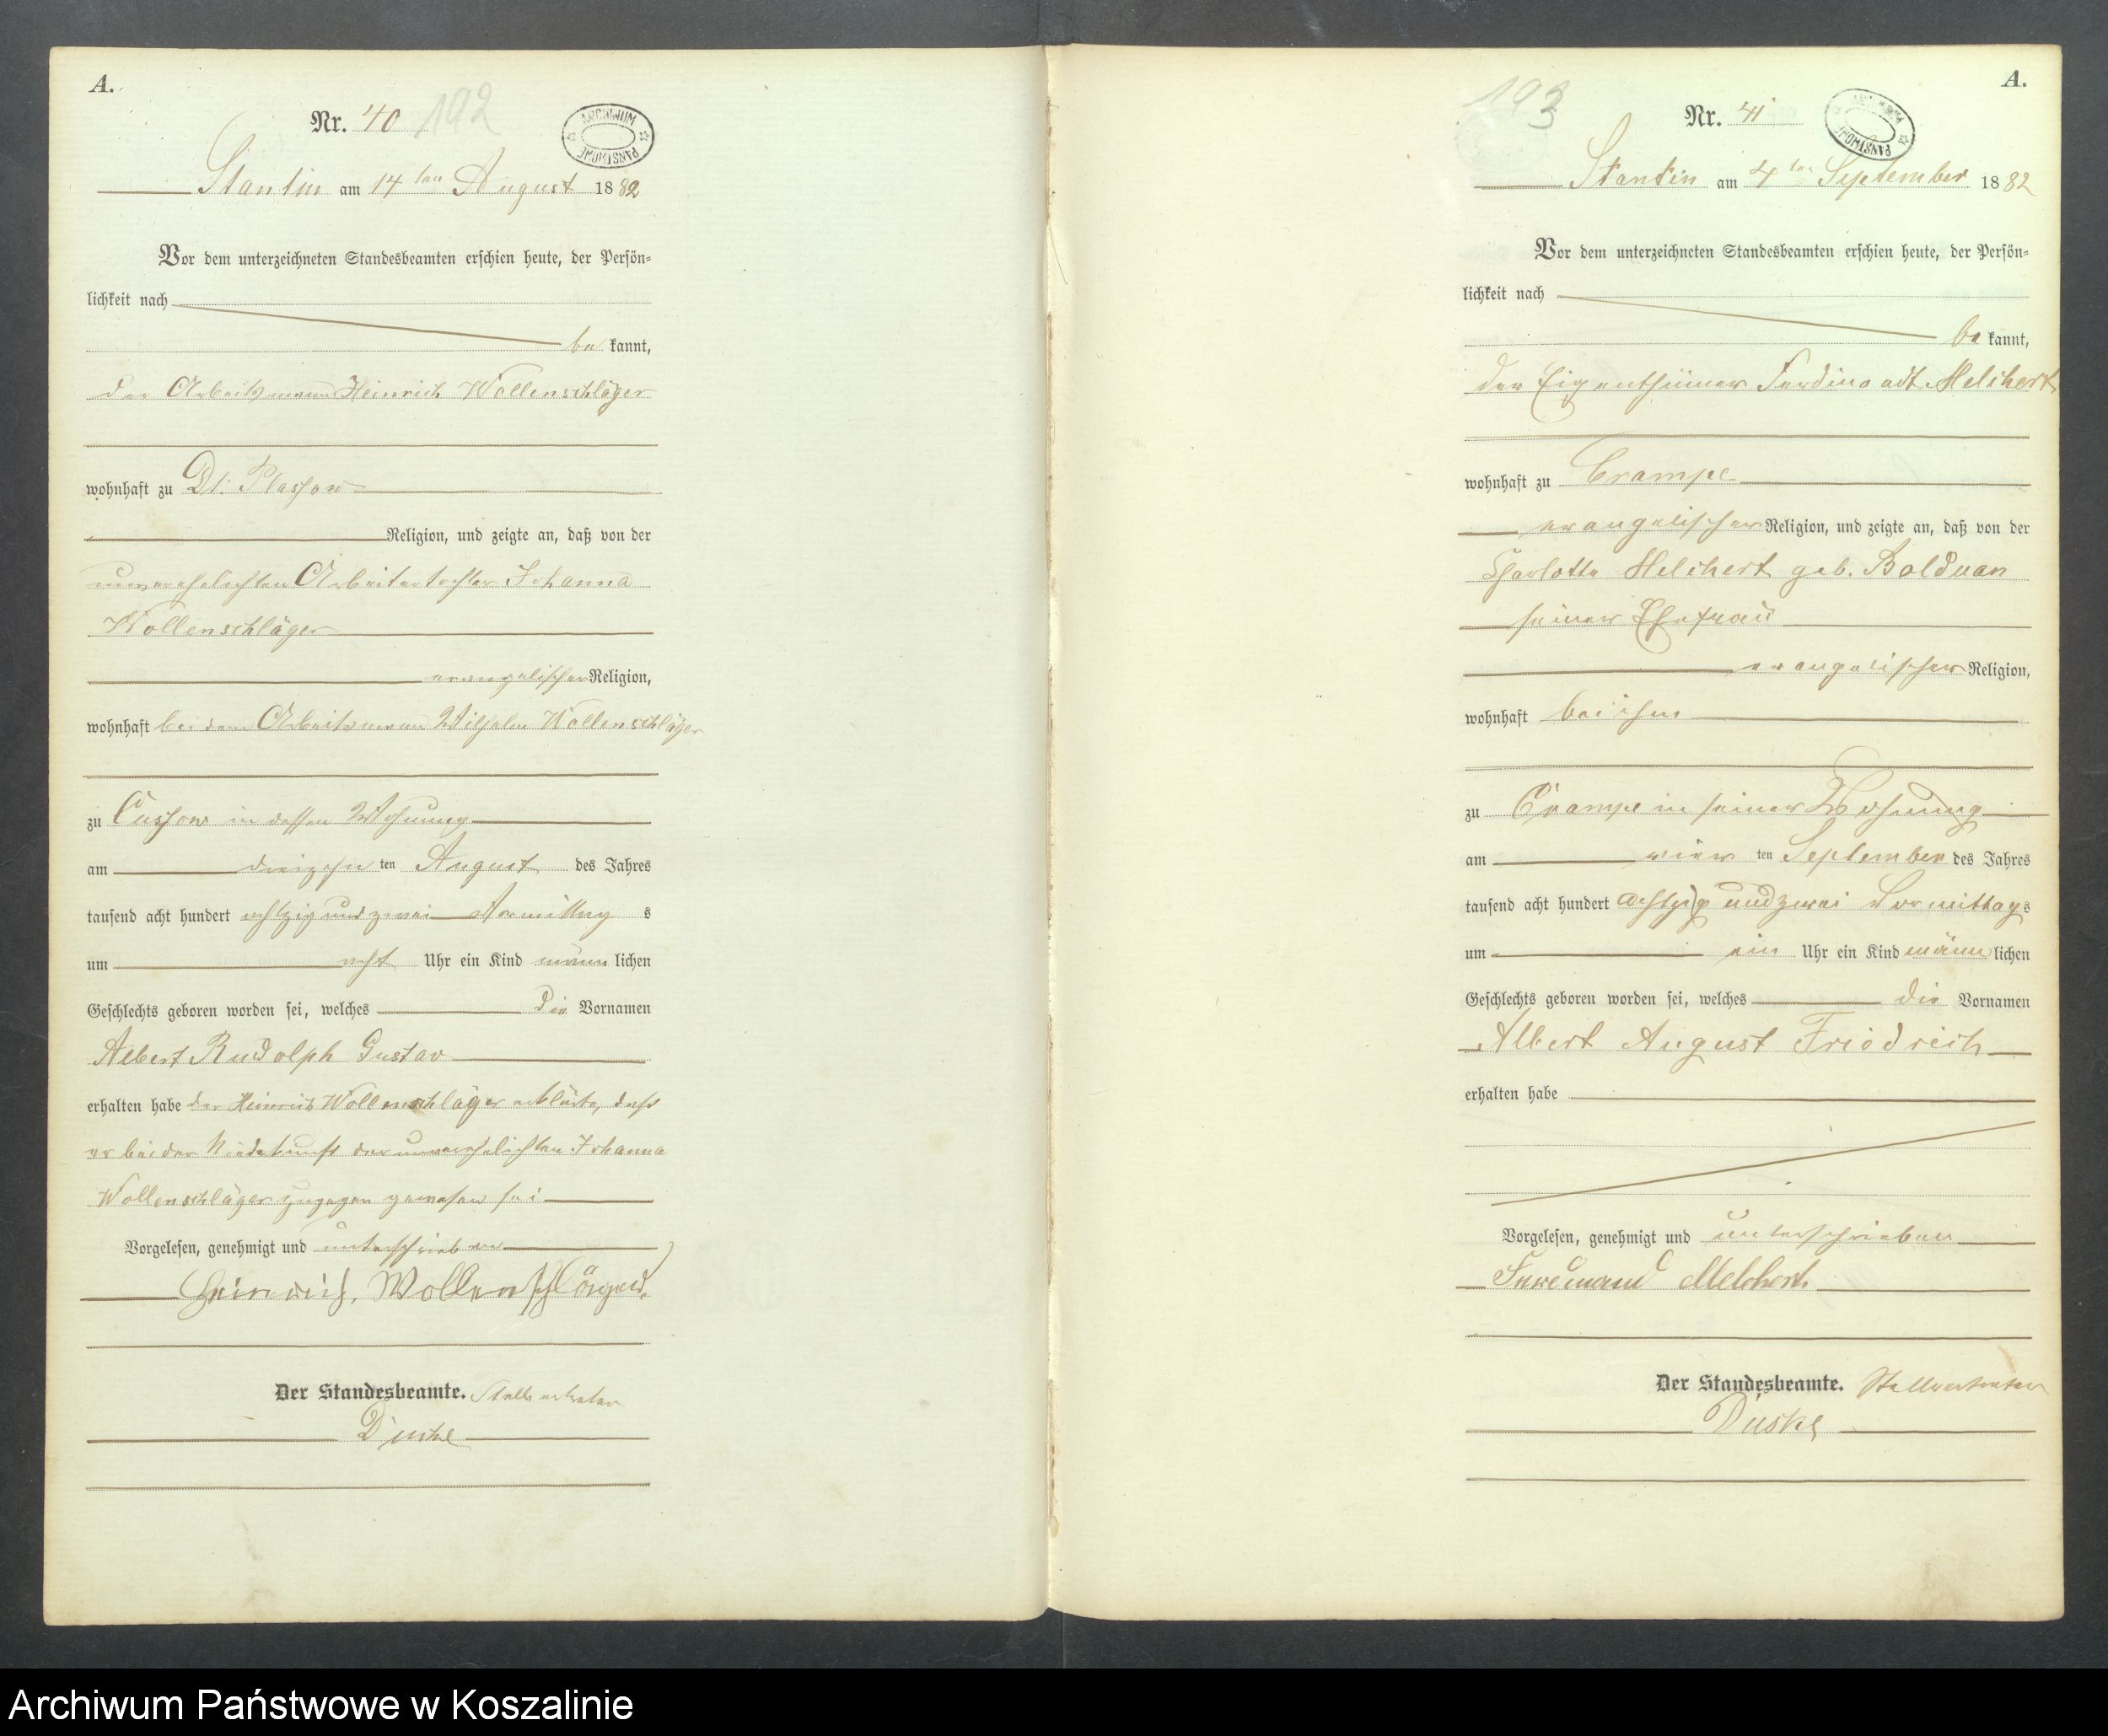 A.
Nr. 40 192
ARCHIWUM PAŃSTWOWE
Stantin am 14ten August 1882
Vor dem unterzeichneten Standesbeamten erschien heute, der Persön-
lichkeit nach
be kannt,
der Arbeitsmann Heinrich Wollenschläger
wohnhaft zu Dt. Plassow
Religion, und zeigte an, daß von der
unverehelichten Arbeitertochter Johanna
Wollenschläger
evangelischer Religion,
wohnhaft bei dem Arbeitsmann Wilhelm Wollenschläger
zu Cussow in dessen Wohnung
am dreizehn ten August des Jahres
tausend acht hundert achtzig und zwei Vormittag s
um acht Uhr ein Kind männ lichen
Geschlechts geboren worden sei, welches die Vornamen
Albert Rudolph Gustav
erhalten habe der Heinrich Wollenschläger erklärte, daß
er bei der Niederkunft der unverehelichten Johanna
Wollenschläger zugegen gewesen sei
Vorgelesen, genehmigt und unterschrieben
Heinrich Wollenschläger
Der Standesbeamte. Stellvertreter
A.
193 Nr. 41
ARCHIWUM PAŃSTWOWE
Stantin am 4ten September 1882
Vor dem unterzeichneten Standesbeamten erschien heute, der Persön-
lichkeit nach
be kannt,
der Eigenthümer Ferdinandt Melchert
wohnhaft zu Crampe
evangelischer Religion, und zeigte an, daß von der
Charlotte Melchert geb. Balduan
seiner Ehefrau
evangelischer Religion,
wohnhaft bei ihm
zu Crampe in seiner Wohnung
am vier ten September des Jahres
tausend acht hundert achtzig und zwei Vormittags
um ein Uhr ein Kind männ lichen
Geschlechts geboren worden sei, welches die Vornamen
Albert August Friedrich
erhalten habe
Vorgelesen, genehmigt und unterschrieben
Ferdinand Melchert
Der Standesbeamte. Stellvertreter
Archiwum Państwowe w Koszalinie